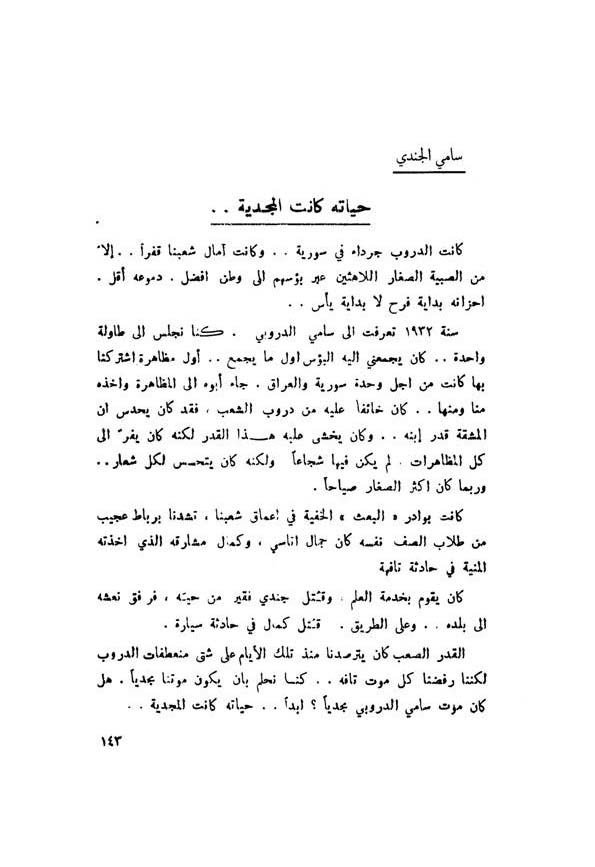 سامي الجندي
حياته كانت المجدية . .
كانت الدروب جرداء في سورية . . وكانت آمال شعبنا قفراً . . إلا
من الصبية الصغار اللاهثين عبر بؤسهم الى وطن افضل . دموعه أقل .
احزانه بداية فرح لا بداية يأس . .
سنة ١٩٣٢ تعرفت الى سامي الدروبي . كنا نجلس الى طاولة
واحدة . . كان يجمعني اليه البؤس اول ما يجمع . . أول مظاهرة اشتركنا
بها كانت من اجل وحدة سورية والعراق . جاء أبوه الى المظاهرة واخذه
منا ومنها . . كان خائفاً عليه من دروب الشعب ، فقد كان يحدس ان
المشقة قدر إبنه . . وكان يخشى عليه هذا القدر لكنه كان يفرّ الى
كل المظاهرات . لم يكن فيها شجاعاً ولكنه كان يتحمس لكل شعار . .
وربما كان اكثر الصغار صياحاً .
كانت بوادر « البعث » الخفية في اعماق شعبنا ، تشدنا برباط عجيب
من طلاب الصف نفسه كان جمال اتاسي ، وكمال مشارقه الذي اخذته
المنية في حادثة تافهة
كان يقوم بخدمة العلم ، وقتل جندي فقير من حيّه ، فرافق نعشه
الى بلده . . وعلى الطريق . قتل كمال في حادثة سيارة .
القدر الصعب كان يترصدنا منذ تلك الأيام على شتى منعطفات الدروب
لكننا رفضنا كل موت تافه . . كنا نحلم بان يكون موتنا مجدياً . هل
كان موت سامي الدروبي مجدياً ؟ ابداً . . حياته كانت المجدية . .
١٤٣